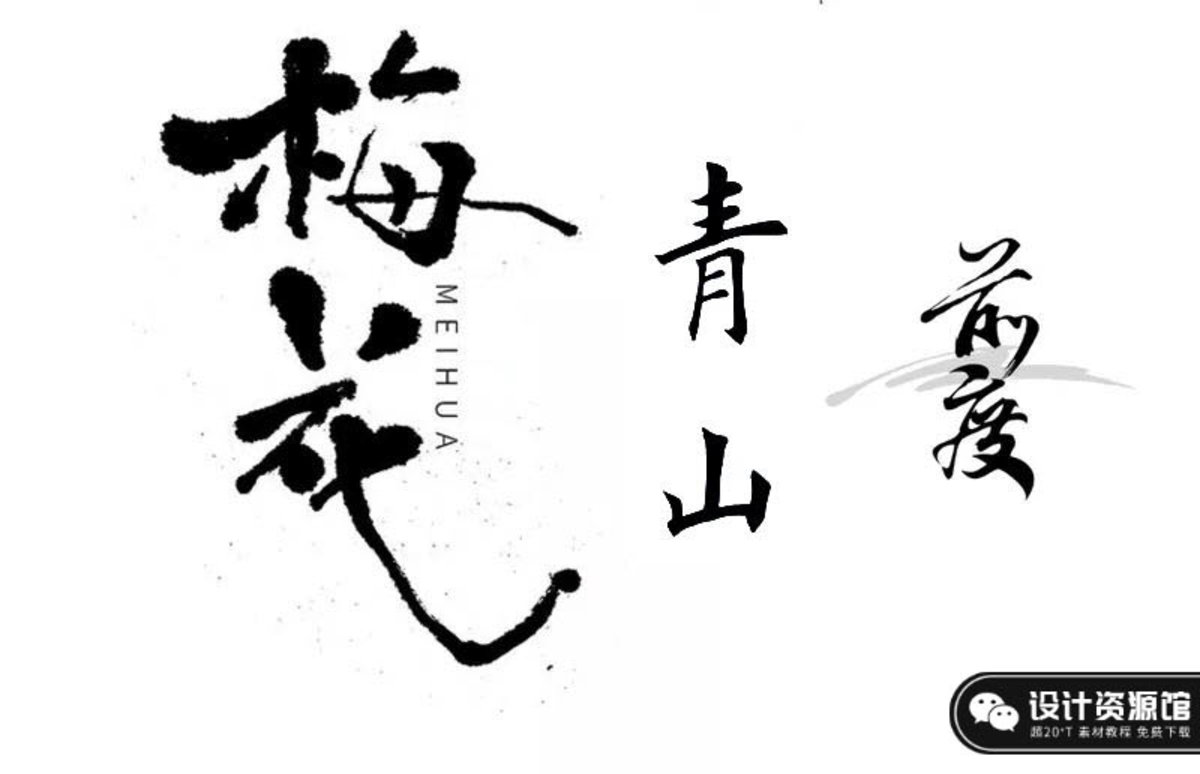 梅花
MEIHUA
青山
前度
设计资源馆
超20*T 素材教程 免费下载